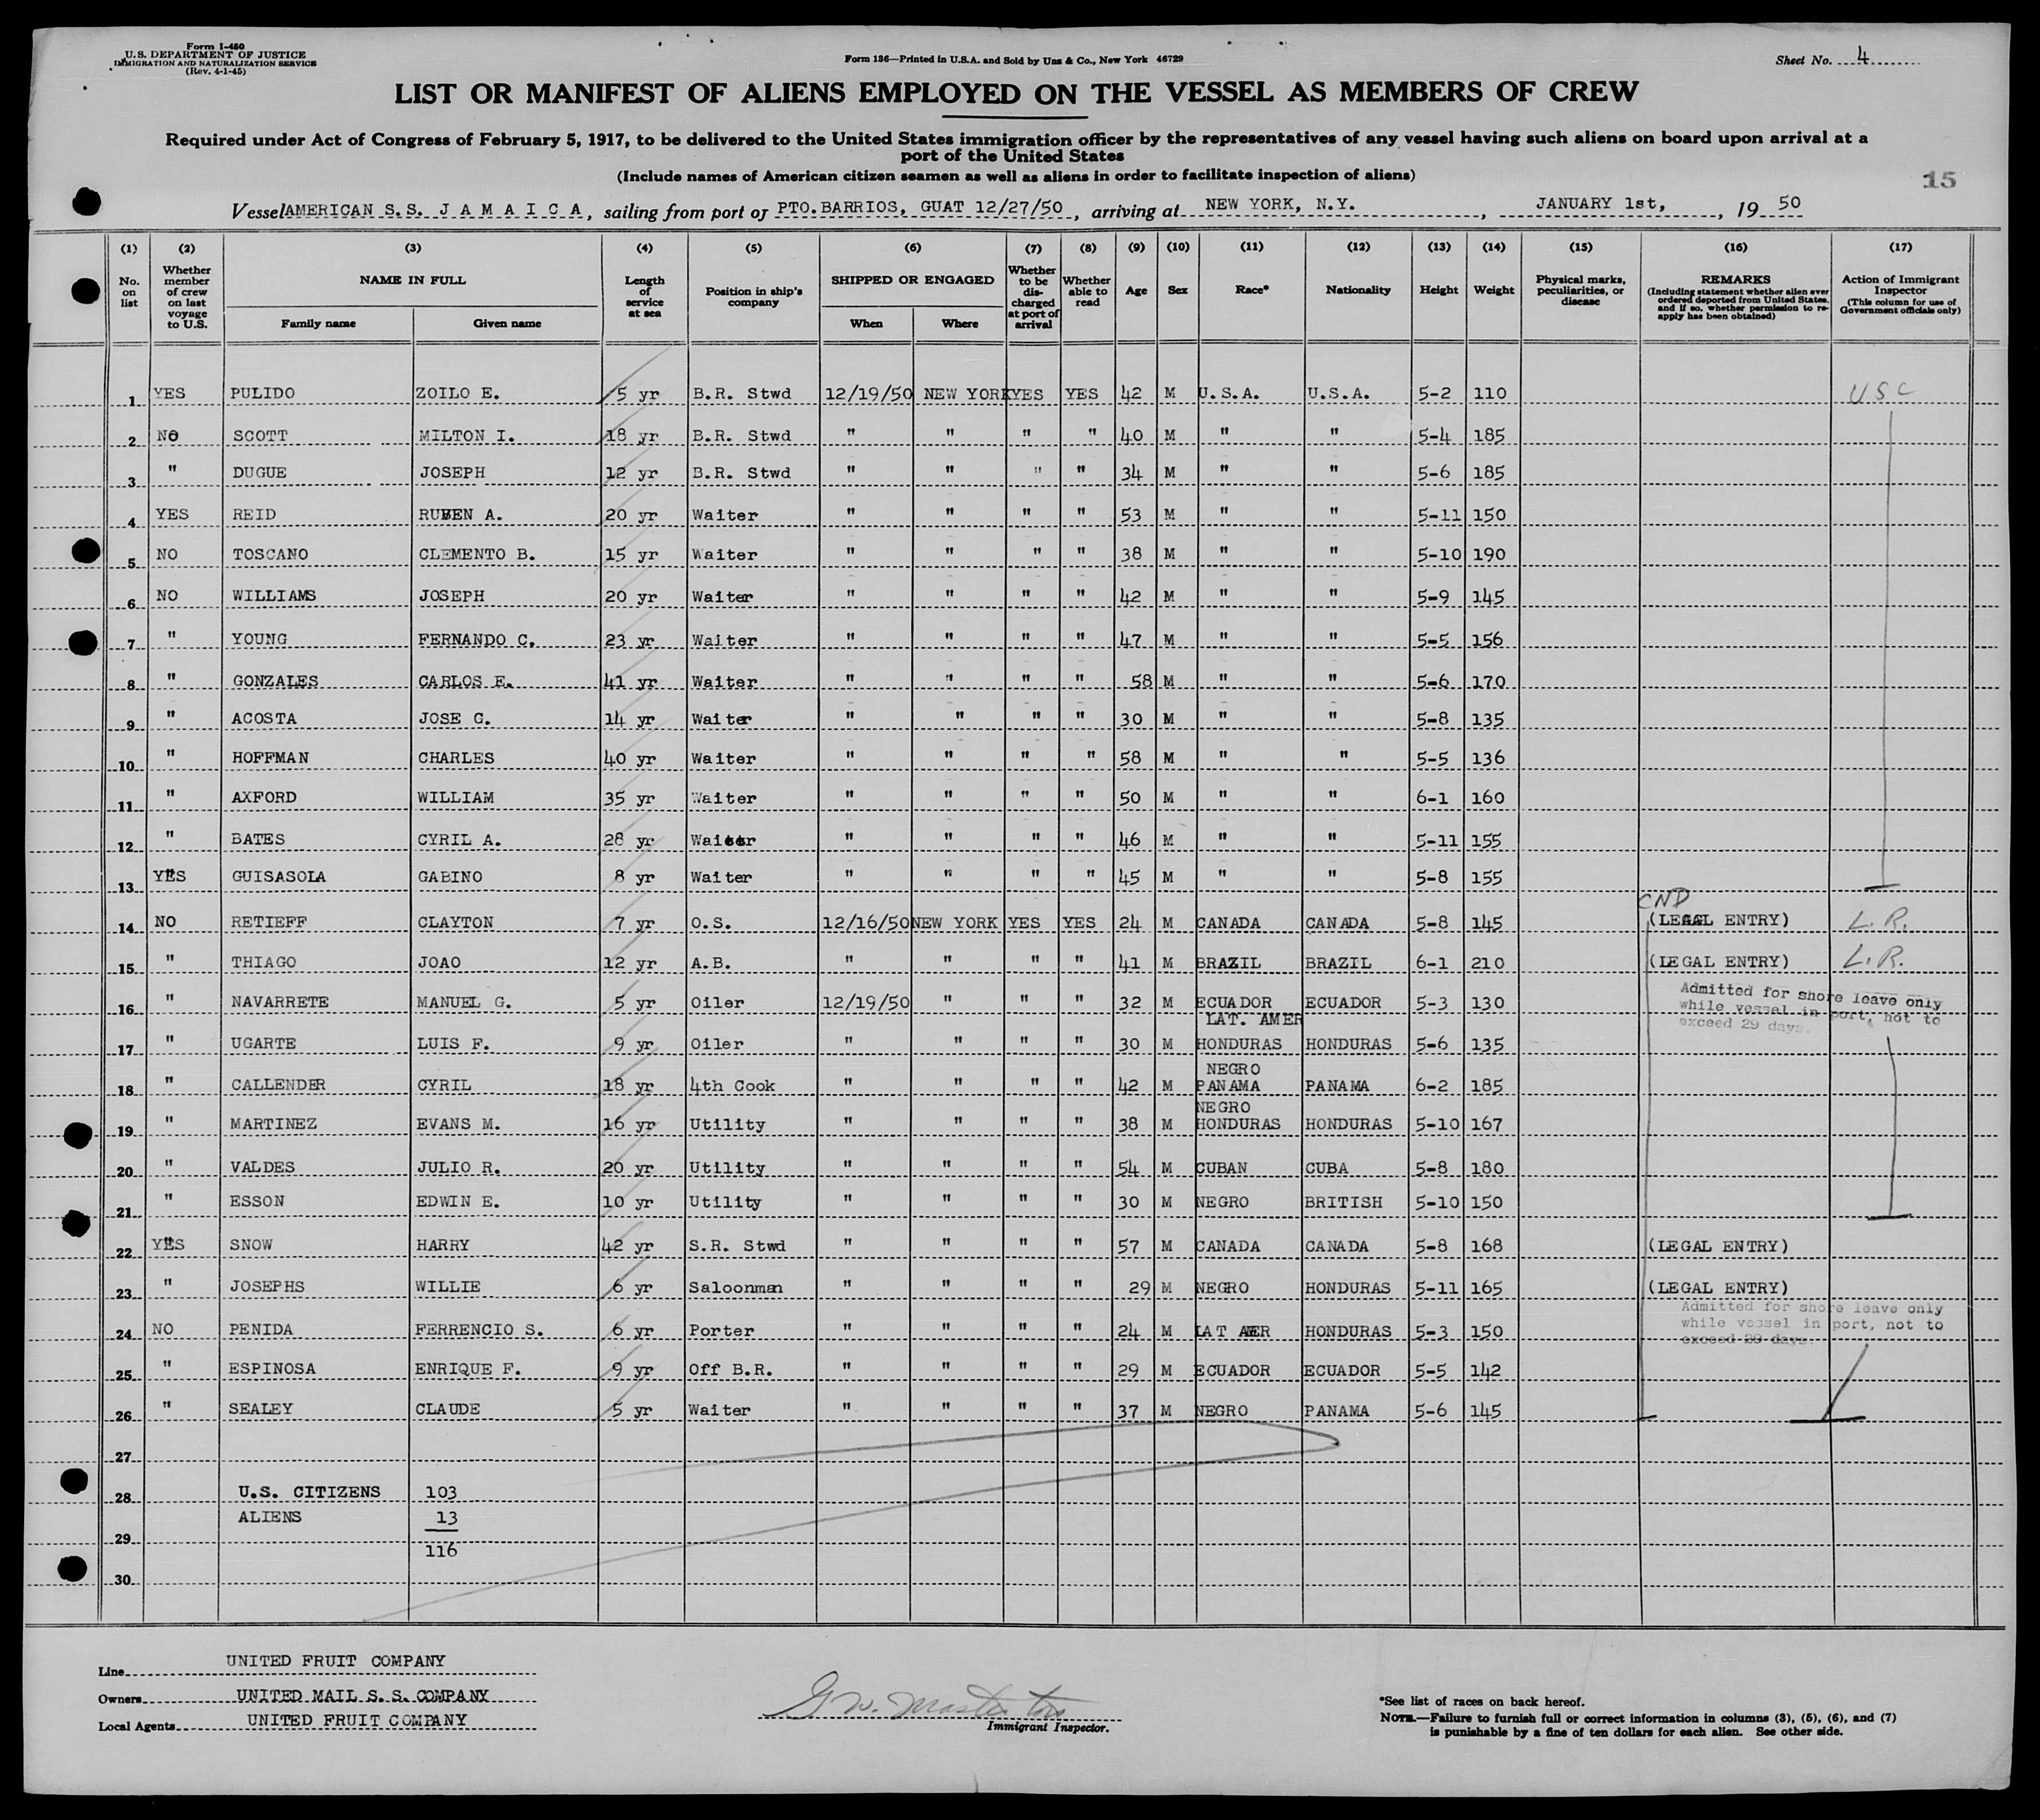 Form I-450
U. S. DEPARTMENT OF JUSTICE
IMMIGRATION AND NATURALIZATION SERVICE
(Rev. 4-1-45)
Form 136—Printed in U.S.A. and Sold by Unz & Co., New York 46729
Sheet No. 4
LIST OR MANIFEST OF ALIENS EMPLOYED ON THE VESSEL AS MEMBERS OF CREW
Required under Act of Congress of February 5, 1917, to be delivered to the United States immigration officer by the representatives of any vessel having such aliens on board upon arrival at a
port of the United States
(Include names of American citizen seamen as well as aliens in order to facilitate inspection of aliens)
15
Vessel AMERICAN S.S. J A M A I C A, sailing from port of PTO.BARRIOS, GUAT 12/27/50, arriving at NEW YORK, N.Y., JANUARY 1st, , 19 50
(1) (2) (3) (4) (5) (6) (7) (8) (9) (10) (11) (12) (13) (14) (15) (16) (17)
No. on list
Whether member of crew on last voyage to U.S.
NAME IN FULL
Family name Given name
Length of service at sea
Position in ship's company
SHIPPED OR ENGAGED
When Where
Whether to be discharged at port of arrival
Whether able to read
Age
Sex
Race*
Nationality
Height
Weight
Physical marks, peculiarities, or disease
REMARKS
(Including statement whether alien ever ordered deported from United States, and if so, whether permission to re-apply has been obtained)
Action of Immigrant Inspector
(This column for use of Government officials only)
1 YES PULIDO ZOILO E. 5 yr B.R. Stwd 12/19/50 NEW YORK YES YES 42 M U.S.A. U.S.A. 5-2 110 USC
2 NO SCOTT MILTON I. 18 yr B.R. Stwd " " " " 40 M " " 5-4 185
3 " DUGUE JOSEPH 12 yr B.R. Stwd " " " " 34 M " " 5-6 185
4 YES REID RUBEN A. 20 yr Waiter " " " " 53 M " " 5-11 150
5 NO TOSCANO CLEMENTO B. 15 yr Waiter " " " " 38 M " " 5-10 190
6 NO WILLIAMS JOSEPH 20 yr Waiter " " " " 42 M " " 5-9 145
7 " YOUNG FERNANDO C. 23 yr Waiter " " " " 47 M " " 5-5 156
8 " GONZALES CARLOS E. 41 yr Waiter " " " " 58 M " " 5-6 170
9 " ACOSTA JOSE C. 14 yr Waiter " " " " 30 M " " 5-8 135
10 " HOFFMAN CHARLES 40 yr Waiter " " " " 58 M " " 5-5 136
11 " AXFORD WILLIAM 35 yr Waiter " " " " 50 M " " 6-1 160
12 " BATES CYRIL A. 28 yr Waiter " " " " 46 M " " 5-11 155
13 YES GUISASOLA GABINO 8 yr Waiter " " " " 45 M " " 5-8 155
CND
14 NO RETIEFF CLAYTON 7 yr O.S. 12/16/50 NEW YORK YES YES 24 M CANADA CANADA 5-8 145 (LEGAL ENTRY) L.R.
15 " THIAGO JOAO 12 yr A.B. " " " " 41 M BRAZIL BRAZIL 6-1 210 (LEGAL ENTRY) L.R.
16 " NAVARRETE MANUEL G. 5 yr Oiler 12/19/50 " " " 32 M ECUADOR ECUADOR 5-3 130 Admitted for shore leave only
while vessel in port, not to
exceed 29 days.
LAT. AMER
17 " UGARTE LUIS F. 9 yr Oiler " " " " 30 M HONDURAS HONDURAS 5-6 135
NEGRO
18 " CALLENDER CYRIL 18 yr 4th Cook " " " " 42 M PANAMA PANAMA 6-2 185
NEGRO
19 " MARTINEZ EVANS M. 16 yr Utility " " " " 38 M HONDURAS HONDURAS 5-10 167
20 " VALDES JULIO R. 20 yr Utility " " " " 54 M CUBAN CUBA 5-8 180
21 " ESSON EDWIN E. 10 yr Utility " " " " 30 M NEGRO BRITISH 5-10 150
22 YES SNOW HARRY 42 yr S.R. Stwd " " " " 57 M CANADA CANADA 5-8 168 (LEGAL ENTRY)
23 " JOSEPHS WILLIE 6 yr Saloonman " " " " 29 M NEGRO HONDURAS 5-11 165 (LEGAL ENTRY)
Admitted for shore leave only
while vessel in port, not to
exceed 29 days.
24 NO PENIDA FERRENCIO S. 6 yr Porter " " " " 24 M LAT AMER HONDURAS 5-3 150
25 " ESPINOSA ENRIQUE F. 9 yr Off B.R. " " " " 29 M ECUADOR ECUADOR 5-5 142
26 " SEALEY CLAUDE 5 yr Waiter " " " " 37 M NEGRO PANAMA 5-6 145
27
28 U.S. CITIZENS 103
29 ALIENS 13
116
30
Line UNITED FRUIT COMPANY
Owners UNITED MAIL S. S. COMPANY
Local Agents UNITED FRUIT COMPANY
G W. Masterton
Immigrant Inspector.
*See list of races on back hereof.
NOTE.—Failure to furnish full or correct information in columns (3), (5), (6), and (7)
is punishable by a fine of ten dollars for each alien. See other side.